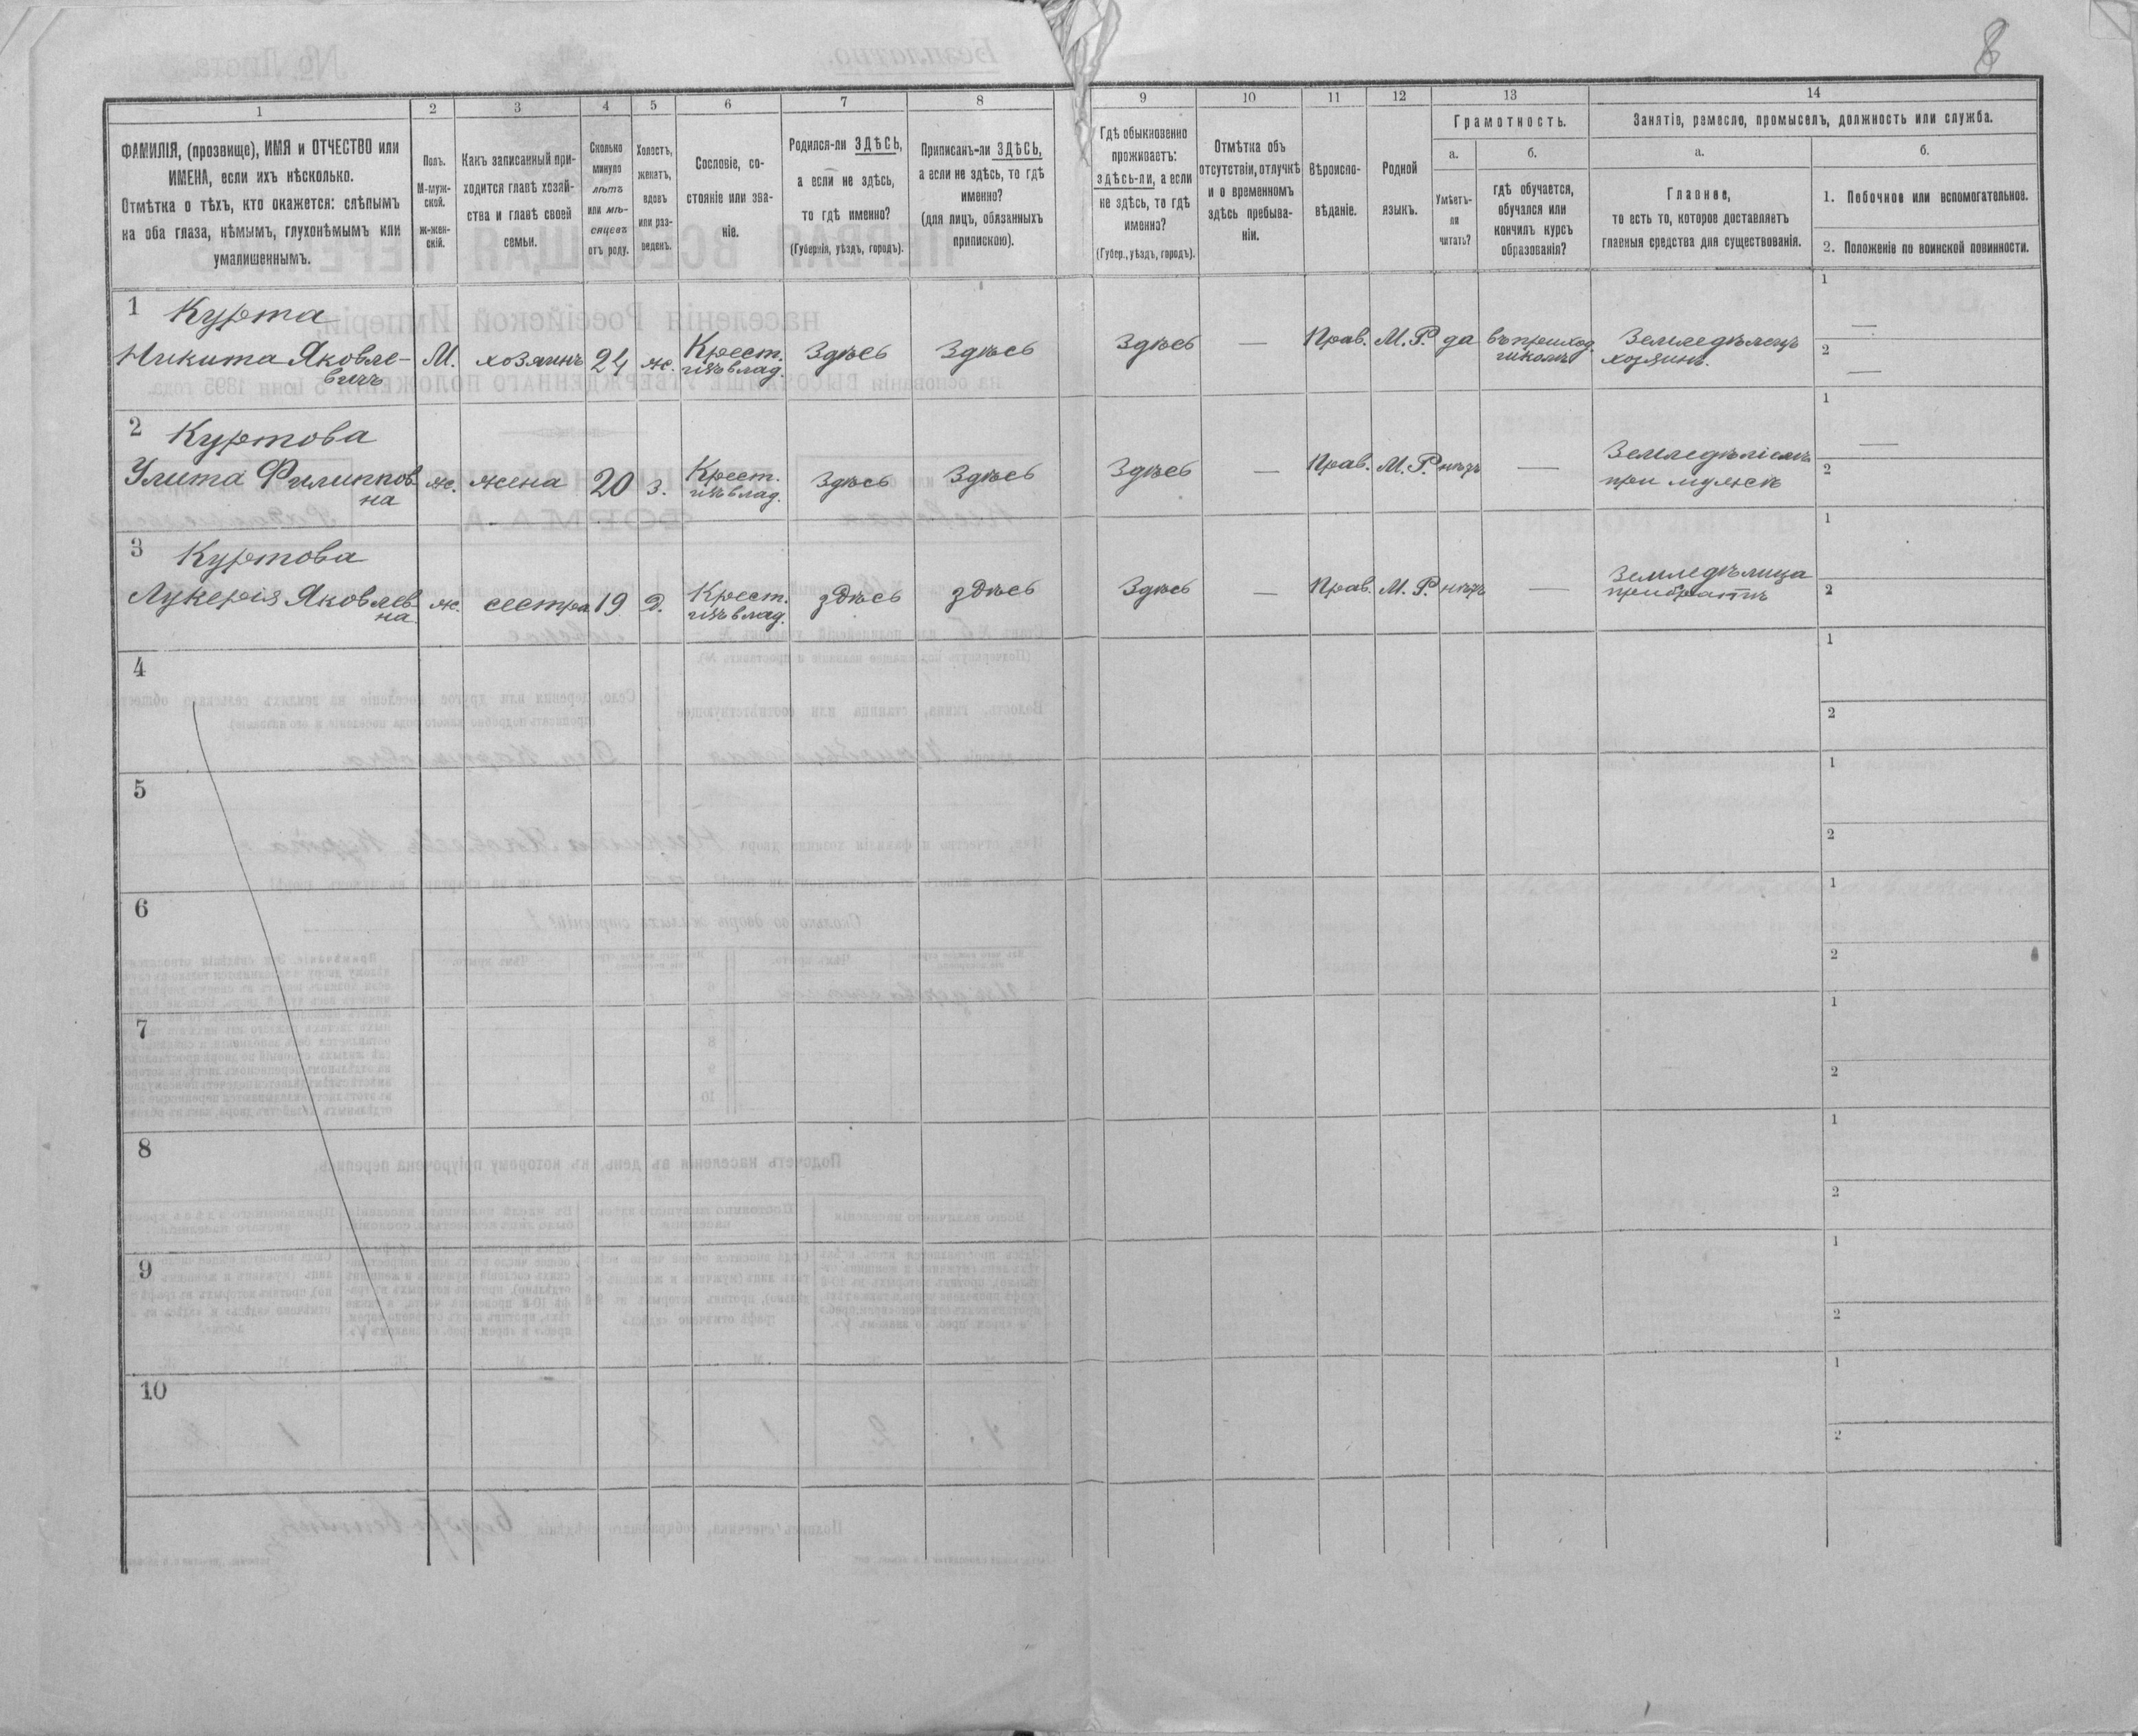 8
1 2 3 4 5 6 7 8 9 10 11 12 13 14
ФАМИЛІЯ, (прозвище), ИМЯ и ОТЧЕСТВО или
ИМЕНА, если ихъ нѣсколько.
Отмѣтка о тѣхъ, кто окажется: слѣпымъ
на оба глаза, нѣмымъ, глухонѣмымъ или
умалишеннымъ.
Полъ.
М-муж-
ской.
Ж-жен-
скій.
Какъ записанный при-
ходится главѣ хозяй-
ства и главѣ своей
семьи.
Сколько
минуло
лѣтъ
или мѣ-
сяцевъ
отъ роду.
Холостъ,
женатъ,
вдовъ
или раз-
веденъ.
Сословіе, со-
стояніе или зва-
ніе.
Родился-ли ЗДѢСЬ,
а если не здѣсь,
то гдѣ именно?
(Губернія, уѣздъ, городъ).
Приписанъ-ли ЗДѢСЬ,
а если не здѣсь, то гдѣ
именно?
(для лицъ, обязанныхъ
припискою).
Гдѣ обыкновенно
проживаетъ:
здѣсь-ли, а если
не здѣсь, то гдѣ
именно?
(Губер., уѣздъ, городъ).
Отмѣтка объ
отсутствіи, отлучкѣ
и о временномъ
здѣсь пребыва-
ніи.
Вѣроиспо-
вѣданіе.
Родной
языкъ.
Грамотность.
а.
Умѣетъ-
ли
читать?
б.
гдѣ обучается,
обучался или
кончилъ курсъ
образованія?
Занятіе, ремесло, промыселъ, должность или служба.
а.
Главное,
то есть то, которое доставляетъ
главныя средства для существованія.
б.
1. Побочное или вспомогательное.
2. Положеніе по воинской повинности.
1 Курта
Никита Яковле-
вичъ
М. хозяинъ 24 ж. Крест.
изъ влад.
Здѣсь Здѣсь Здѣсь — Прав. М.Р. да въ приход.
школѣ
Земледѣлецъ
хозяинъ.
1 —
2 —
2 Куртова
Улита Филиппов
на
ж. жена 20 з. Крест.
изъ влад.
Здѣсь Здѣсь Здѣсь — Прав. М.Р. нѣтъ —
при мужѣ
1 —
2
3 Куртова
Лукерія Яковлев
на
ж. сестра 19 д. Крест.
изъ влад.
здѣсь здѣсь Здѣсь — Прав. М.Р. нѣтъ —
Земледѣлица
при братѣ
1
2
4
1
2
5
1
2
6
1
2
7
1
2
8
1
2
9
1
2
10
1
2